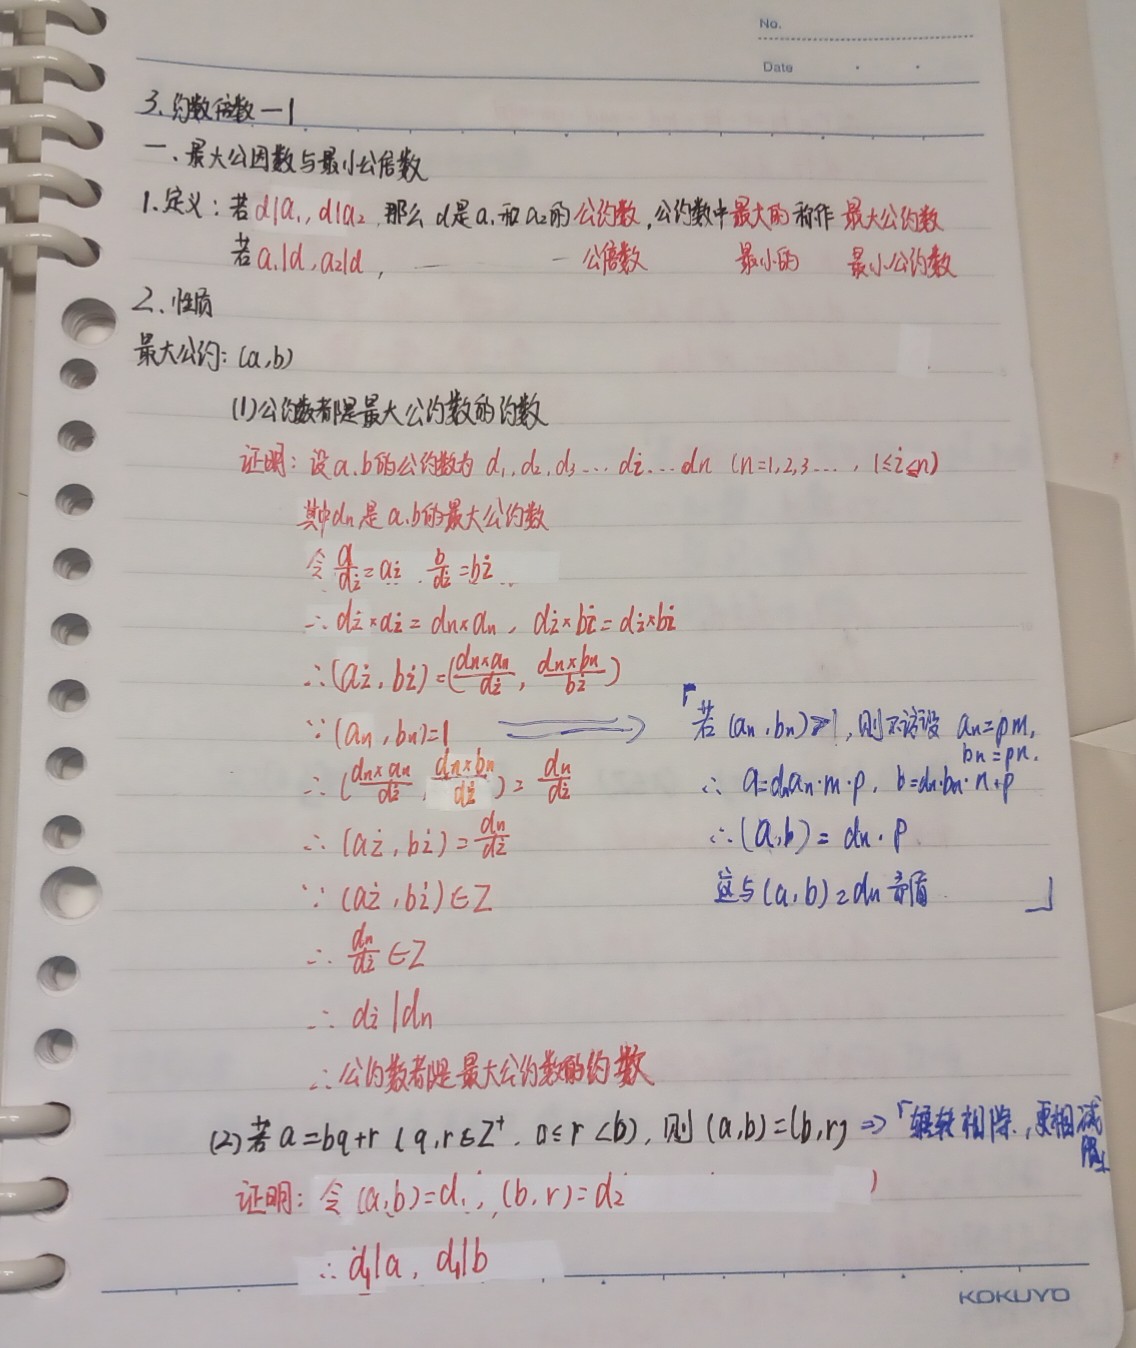 No.
Date
3.约数倍数一1
一、最大公因数与最小公倍数
1.定义：若d|a₁, d|a₂ 那么d是a₁和a₂的公约数,公约数中最大的称作 最大公约数
若a₁|d, a₂|d, — — 公倍数 最小的 最小公约数
2.性质
最大公约：(a,b)
(1)公约数都是最大公约数的约数
证明：设a.b的公约数为 d₁,d₂,d₃…di…dn (n=1,2,3…, 1≤i≤n)
其中dn是a.b的最大公约数
令 a/di=ai b/di=bi
∴ di×ai=dn×an, di×bi=di×bi
∴(ai, bi)=(dn×an/di, dn×bn/bi)
∵(an, bn)=1 ⟹ 「若(an, bn)>1,则不该设 an=pm,
bn=pn.
∴(dn×an/di, dn×bn/di)=dn/di ∴ a=dnan·m·p, b=dn·bn·n·p
∴(ai, bi)=dn/di ∴(a,b)=dn·p
∵(ai, bi)∈Z 这与(a,b)=dn矛盾 」
∴ dn/di∈Z
∴ di|dn
∴公约数都是最大公约数的约数
(2)若a=bq+r (q,r∈Z⁺, 0≤r<b), 则(a,b)=(b,r) ⇒「辗转相除,更相减
损」
证明：令(a,b)=d₁, (b,r)=d₂ )
∴d₁|a, d₁|b
KOKUYO